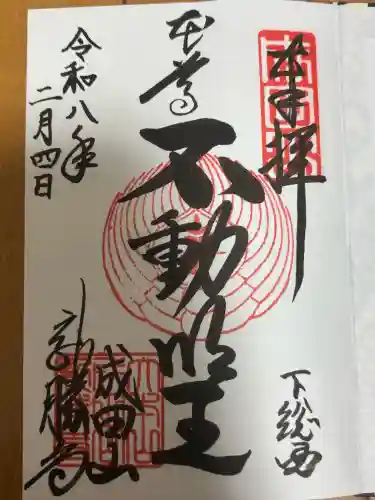 奉拝
下総国
本尊
不動明王
令和八年
二月四日
成田山
新勝寺